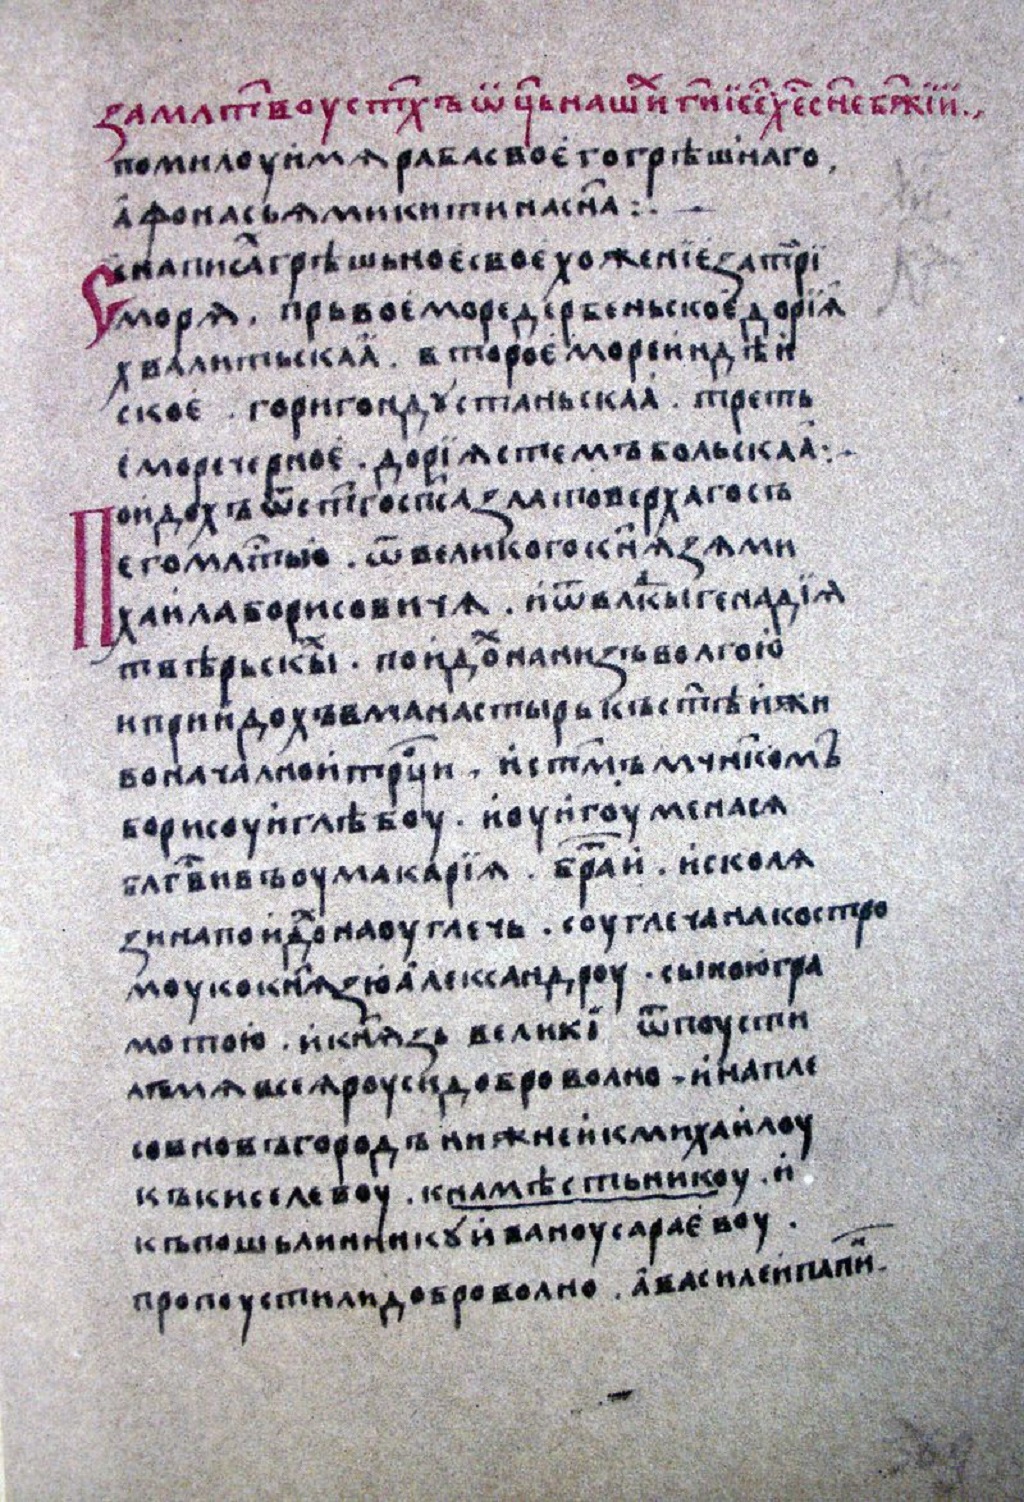 За млтвоу стхъ ѿць нашихъ ги іс хе сне бжїи
помилоуи мѧ раба своего грѣшнаго,
афонасьѧ микитина сна :.
Се написах грѣшьное свое хожение за трї
морѧ . прьвое море дербеньское дорїꙗ
хвалитьскаа . второе море индѣи
ское . гори гондустаньскаа . треть
е море черное . дорїѧ стемъбольскаа :.
Поидохъ ѿ стго спса златоверхаго съ
его млтью . ѿ великого кнѧзѧ ми
хаила борисовичѧ . и ѿ влкы генадїѧ
твѣрьскых . поидох на низъ волгою
и приидохъ в манастырь къ стѣи жи
воначалнои трци . и стмъ мчнком
борисоу и глѣбоу . и оу игоумена сѧ
блгвивъ оу макарїѧ . братїи . и с колѧ
зина поидох на оуглечь . с оуглеча на костро
моу ко кнѧзю александроу . с ыною гра
мотою . и кнѧзь великї ѿпоусти
лъ мѧ всеѧ роуси доброволно . и на пле
со в новъгородъ нижнеи к михаилоу
къ киселевоу . к намѣстьникоу . и
къ пошьлинникꙋ иваноу сараевоу .
пропоустили доброволно . а василеи папин